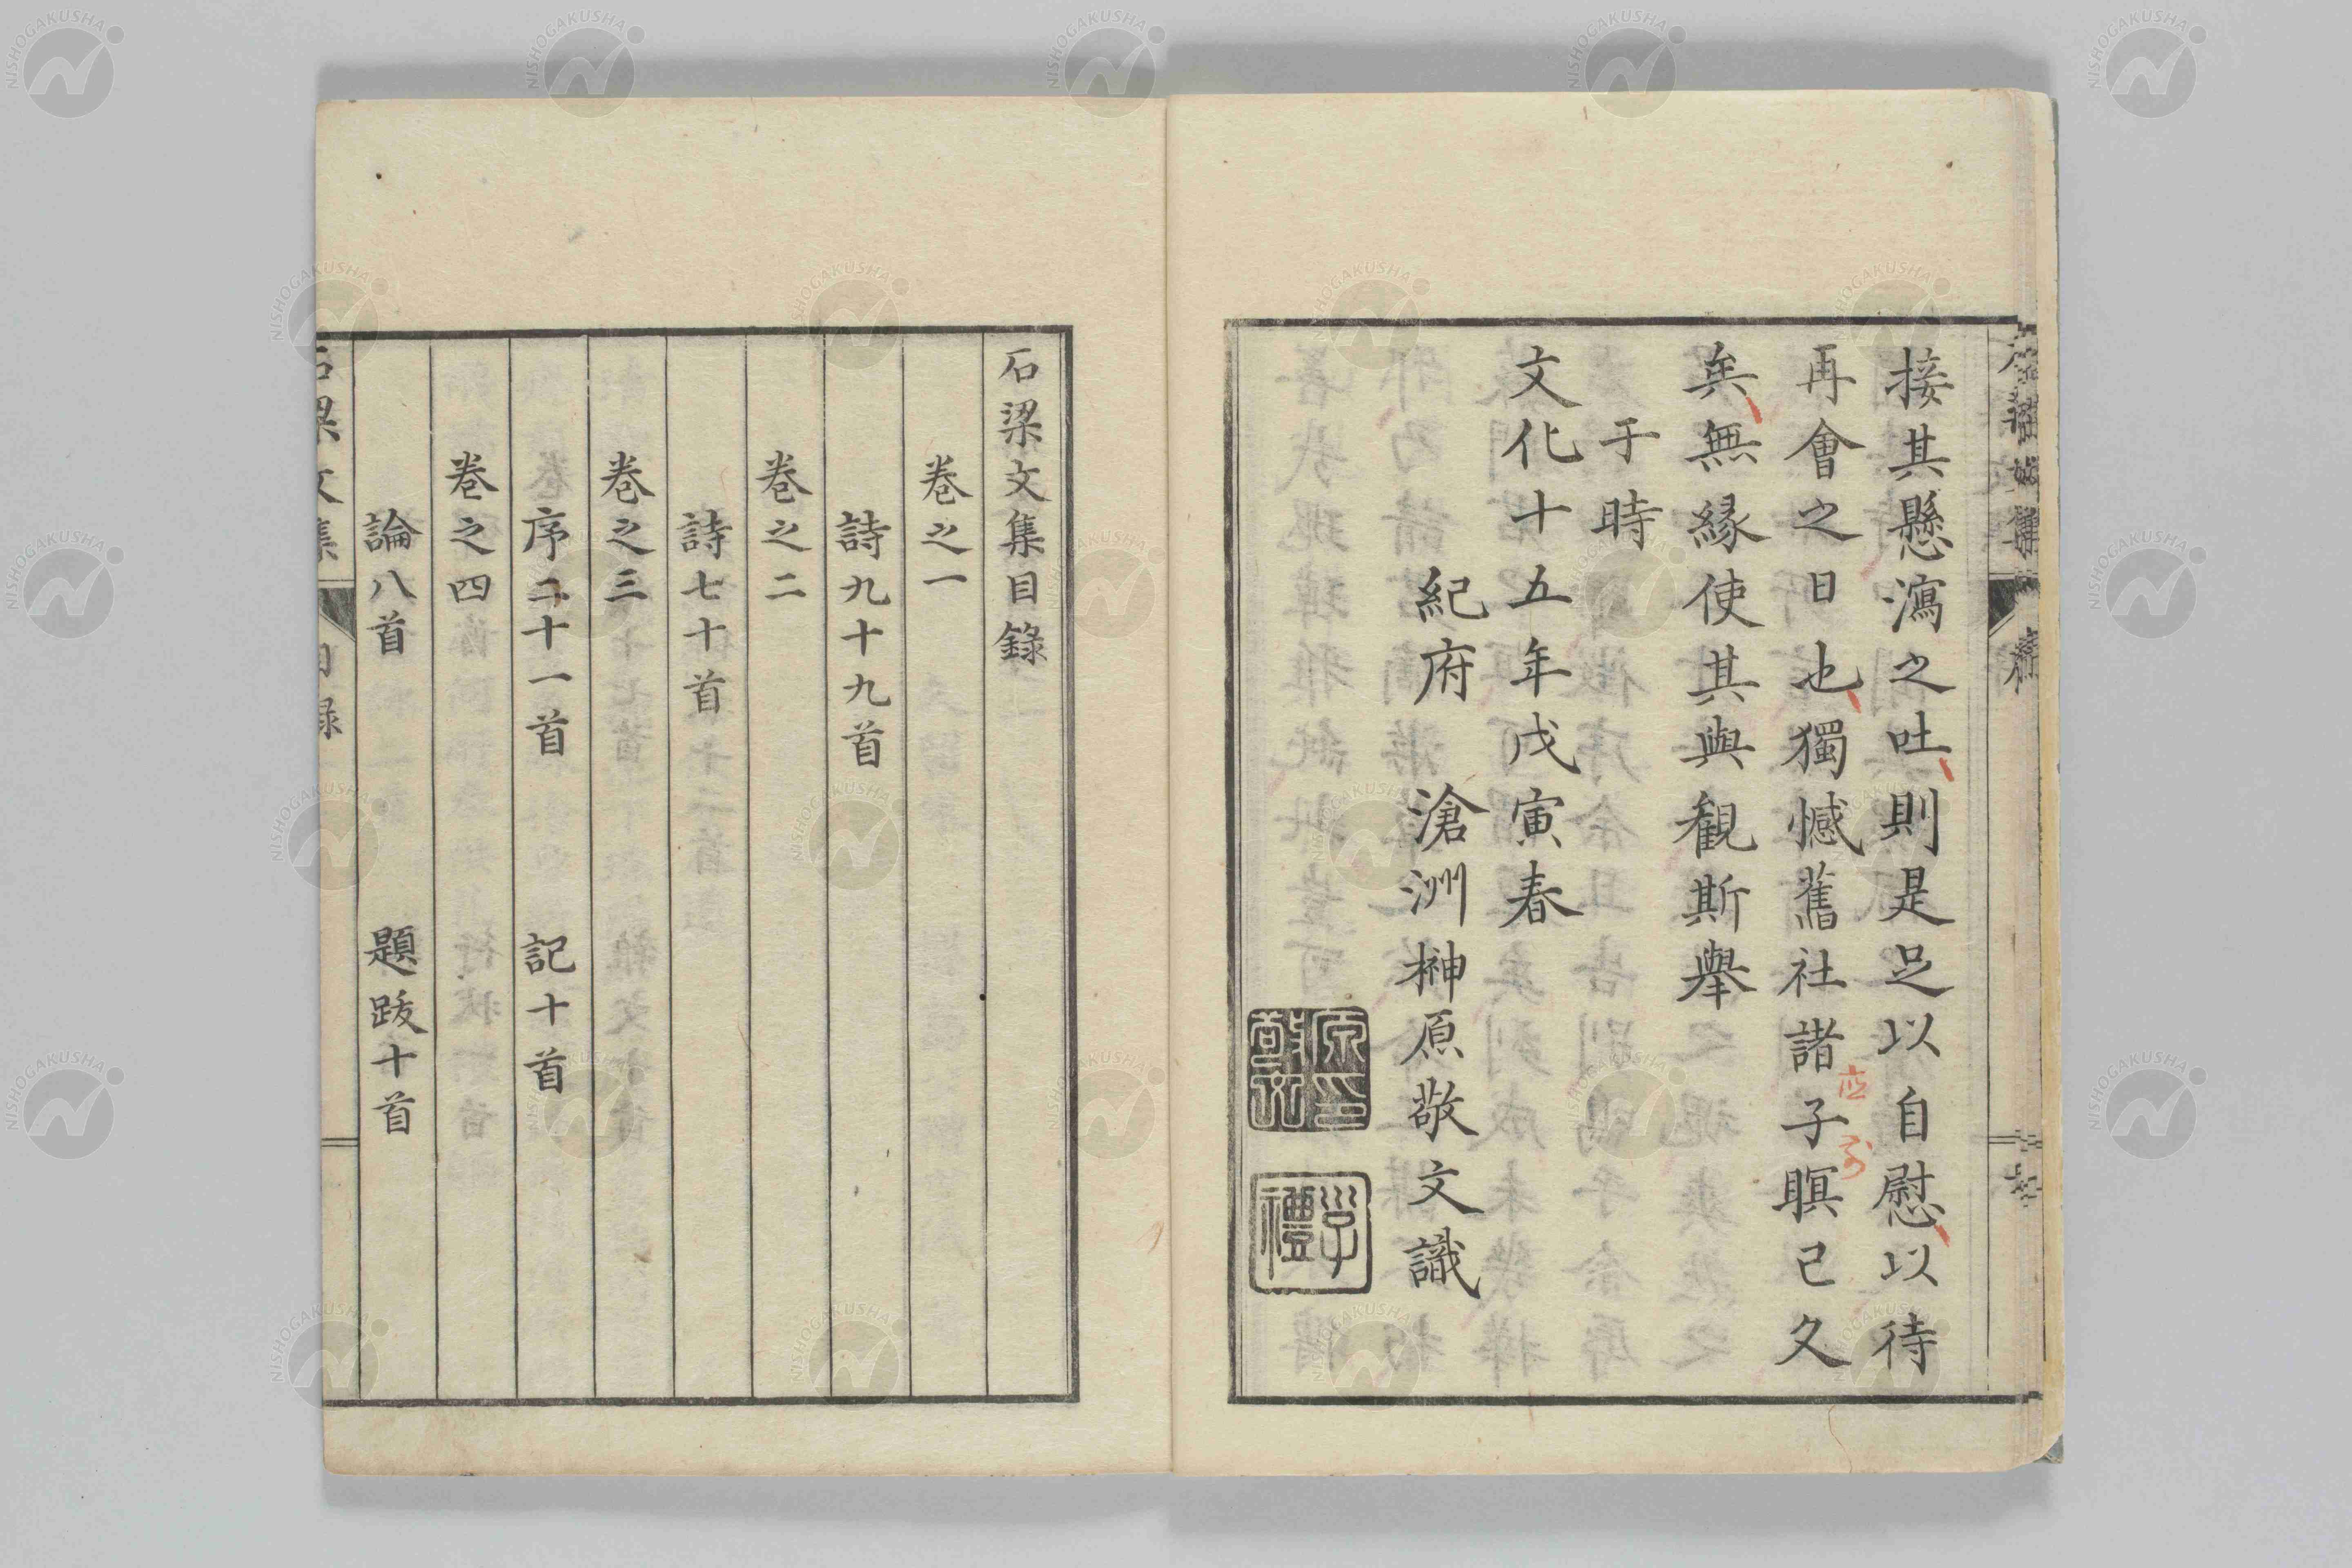 接其懸瀉之吐則是足以自慰以待
再會之日也獨憾舊社諸子瞑已久
矣無縁使其與観斯舉
于時
文化十五年戊寅春
紀府 滄洲榊原敬文識
禮
石梁文集目錄
卷之一
詩九十九首
卷之二
詩七十首
卷之三
序二十一首 記十首
卷之四
論八首 題跋十首
石梁文集 目録
NISHOGAKUSHA